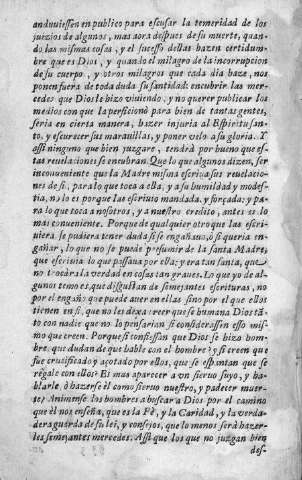 anduuiessen en publico para escusar la temeridad de los
juizios de algunos, mas aora despues de su muerte, quan-
do las mismas cosas, y el sucesso dellas hazen certidum-
bre que es Dios, y quando el milagro de la incorrupcion
de su cuerpo, y otros milagros que cada dia haze, nos
ponen fuera de toda duda su santidad: encubrir las mer-
cedes que Dios le hizo viuiendo, y no querer publicar los
medios con que la perficionò para bien de tantas gentes,
seria en cierta manera, hazer injuria al Espiritu San-
to, y escurecer sus marauillas, y poner velo a su gloria. Y
assi ninguno que bien juzgare, tendrà por bueno que es-
tas reuelaciones se encubran. Que lo que algunos dizen, ser
inconueniente que la Madre misma escriua sus reuelacio-
nes de si, para lo que toca a ella, y a su humildad y modes-
tia, no lo es porque las escriuio mandada, y forçada; y pa-
ra lo que toca a nosotros, y a nuestro credito, antes es lo
mas conueniente. Porque de qualquier otro que las escri-
uiera, se pudiera tener duda si se engañaua, ò si queria en-
gañar, lo que no se puede presumir de la santa Madre,
que escriuia lo que passaua por ella: y era tan santa, que
no trocàra la verdad en cosas tan graues. Lo que yo de al-
gunos temo es, que disgustan de semejantes escrituras, no
por el engaño que puede auer en ellas sino por el que ellos
tienen en si, que no les dexa creer que se humana Dios tã-
to con nadie que no lo pensarian si considerassen esso mis-
mo que creen. Porque si confiessan que Dios se hizo hom-
bre, que dudan de que hable con el hombre? y si creen que
fue crucificado y açotado por ellos, que se espantan que se
regale con ellos? Es mas aparecer a vn sieruo suyo, y ha-
blarle, ò hazerse èl como sieruo nuestro, y padecer muer-
te? Animense los hombres a buscar a Dios por el camino
que èl nos enseña, que es la Fè, y la Caridad, y la verda-
dera guarda de su lei, y consejos, que lo menos serà hazer-
les semejantes mercedes. Assi que los que no juzgan bien
des-